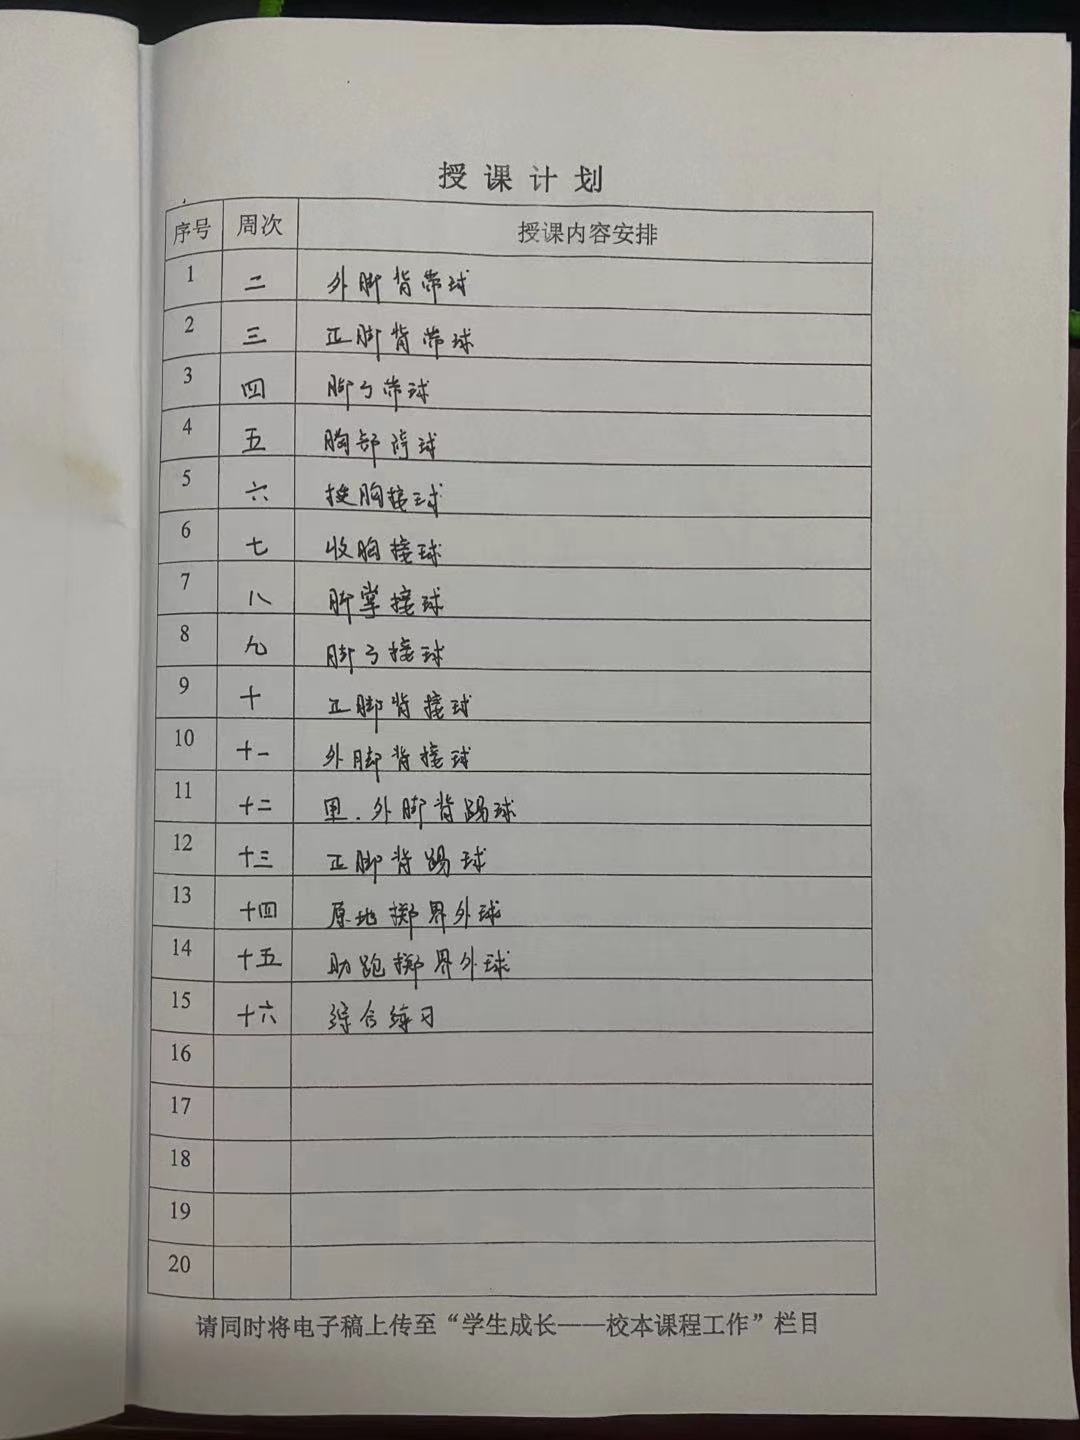 授课计划
序号 周次 授课内容安排
1 二 外脚背带球
2 三 正脚背带球
3 四 脚弓带球
4 五 胸部停球
5 六 挺胸接球
6 七 收胸接球
7 八 脚掌接球
8 九 脚弓接球
9 十 正脚背接球
10 十一 外脚背接球
11 十二 里.外脚背踢球
12 十三 正脚背踢球
13 十四 原地掷界外球
14 十五 助跑掷界外球
15 十六 综合练习
16
17
18
19
20
请同时将电子稿上传至“学生成长——校本课程工作”栏目